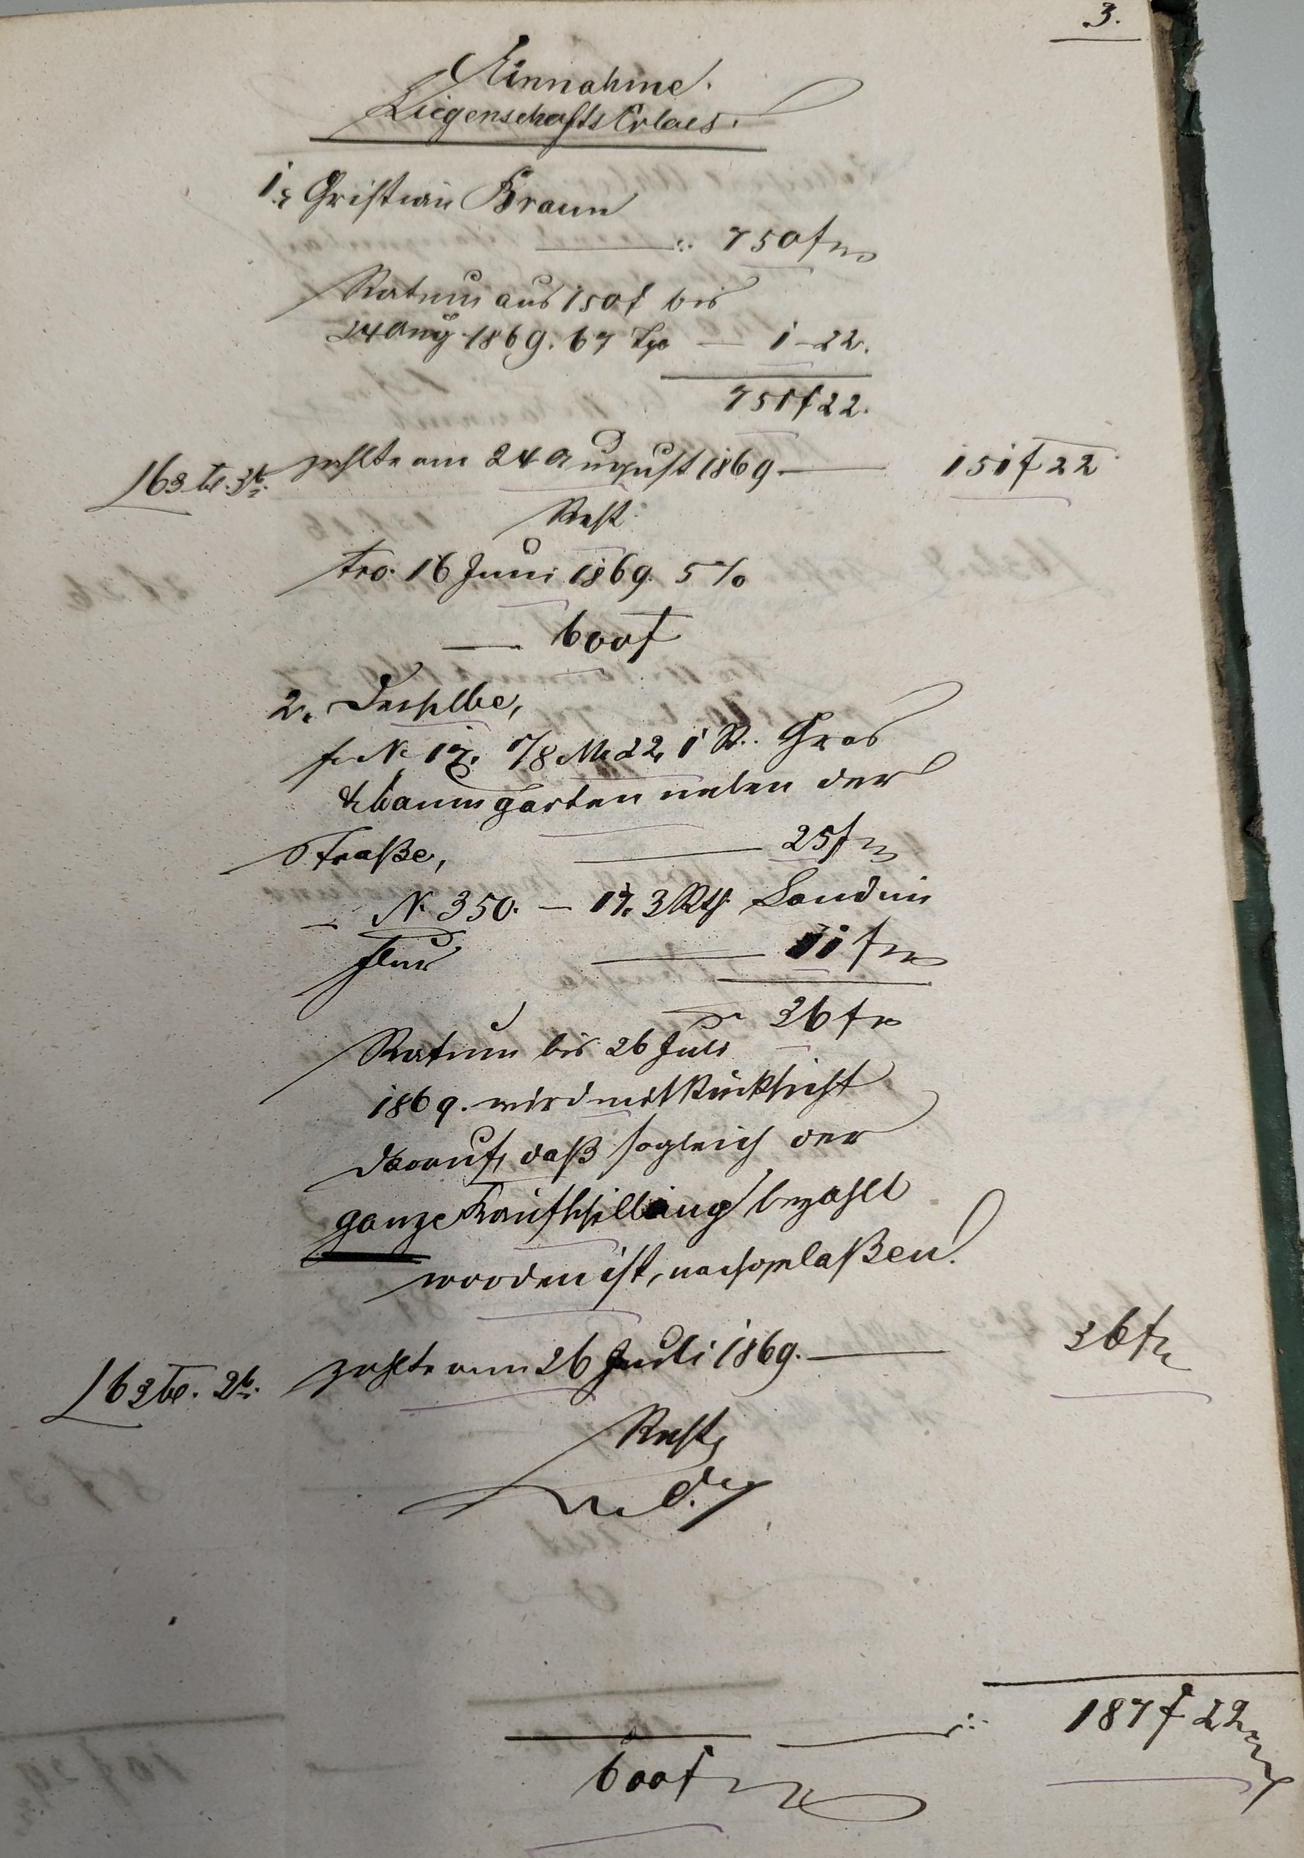 3.
Einnahme.
Liegenschafts Erlaes.
1. Christian Braun
750 f
Ratum aus 150 f bis
24 Aug. 1869. 67 Tge — 1 - 22.
751 f 22.
zahlte am 24 August 1869 — 151 f 22
Rest
tro. 16 Juni 1869. 5 %
— 600 f
2. Derselbe,
f. N. 17. 1/8 M. 22,1 R. Gras
& baumgarten neben der
Straße, — 25 f
— N. 350. — 17.3 Rth. Land im
Flur — 11 f
36 f
Ratum bis 26 Juli
1869. wird mit Rücksicht
darauf, daß sogleich der
ganze Kaufschilling bezahlt
worden ist, nachgelaßen.
zahlte am 26 Juli 1869. — 36 f
Rest,
187 f 22
600 f